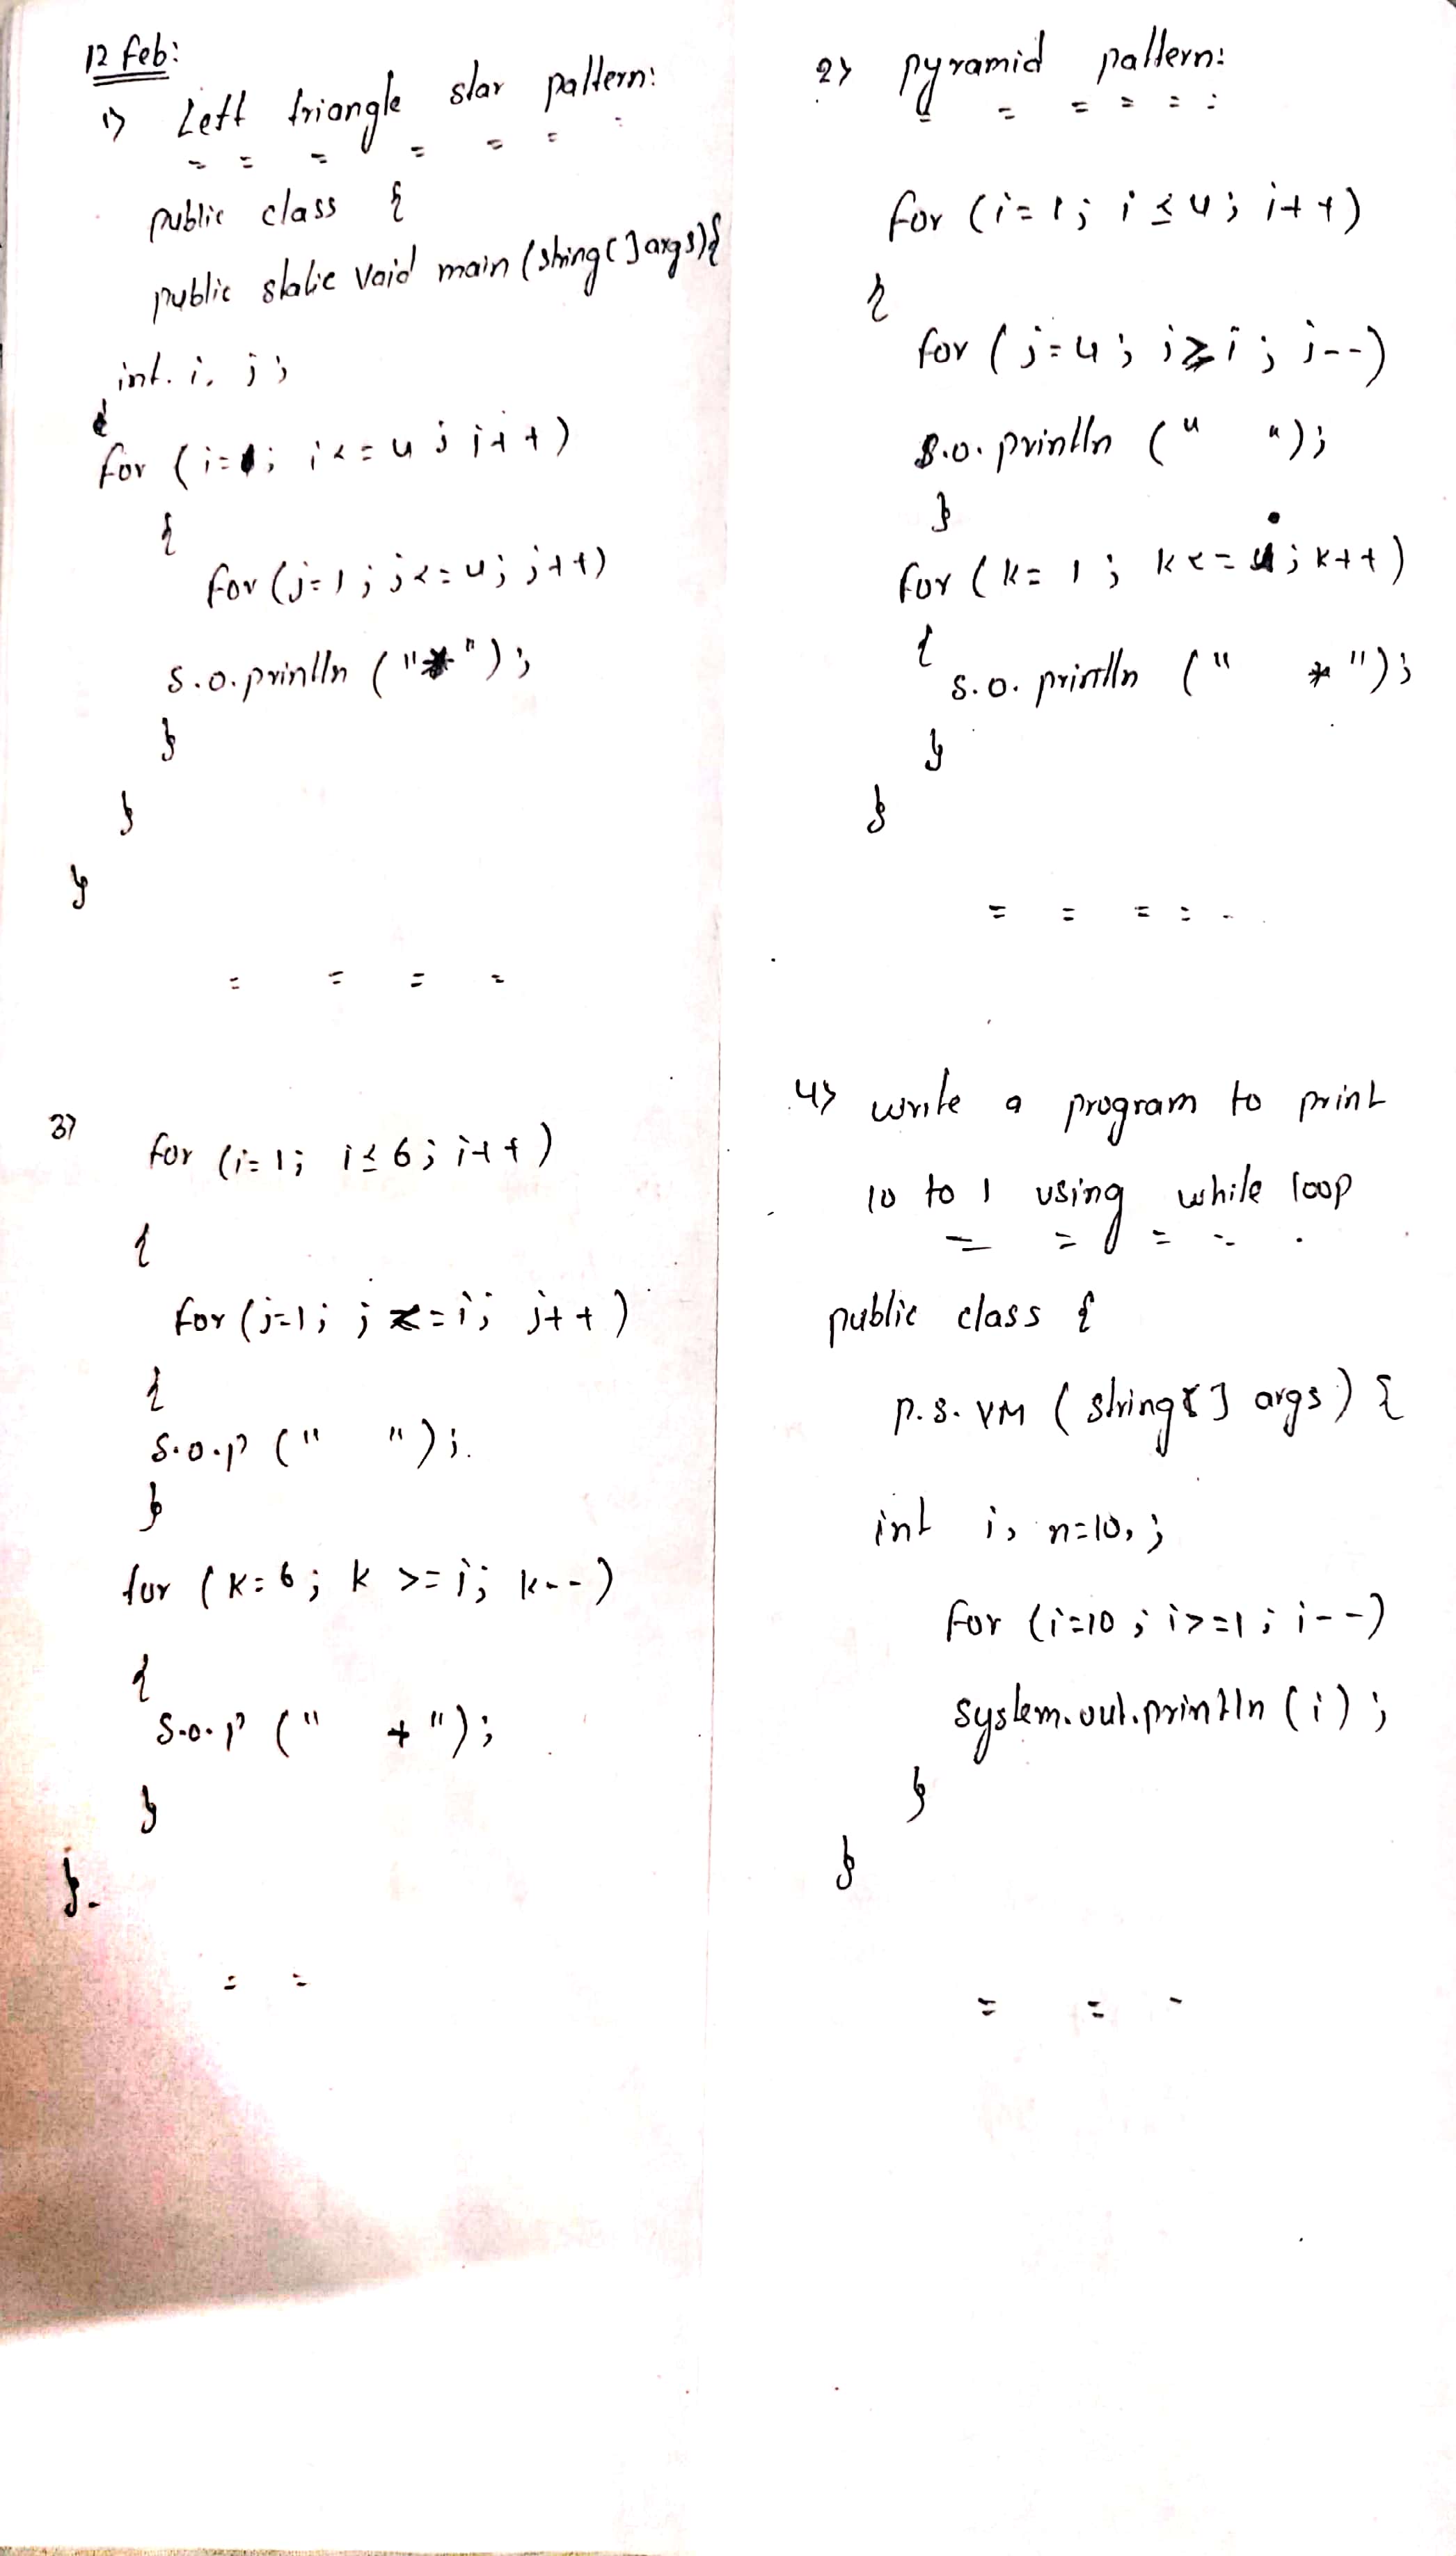 12 feb:
1) Left triangle star pattern:
public class {
public static void main (string[] args) {
int. i, j;
for (i=1; i<=4; i++)
{
for (j=1; j<=4; j++)
s.o. println ("*");
}
}
}
2) pyramid pattern:
for (i=1; i≤4; i++)
{
for (j=4; j≥i; j--)
s.o. println (" ");
}
for (k=1; k<=i; k++)
{
s.o. println (" *");
}
}
3)
for (i=1; i≤6; i++)
{
for (j=1; j<=i; j++)
{
s.o.p (" ");
}
for (k=6; k>=i; k--)
{
s.o.p (" *");
}
}
4) write a program to print
10 to 1 using while loop
public class {
p.s.VM (string[] args) {
int i, n=10,;
for (i=10; i>=1; i--)
system.out.println (i);
}
}